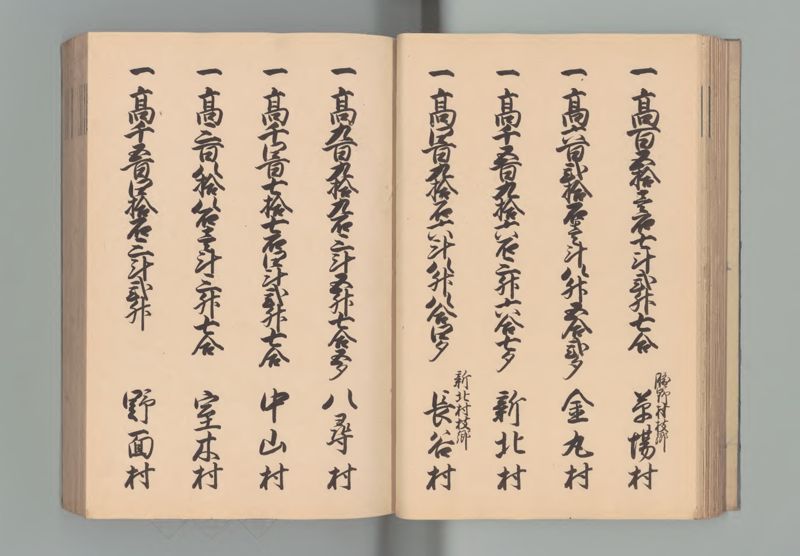 一高百五拾壱石七斗弐升七合
勝野村枝郷
草場村
一高六百弐拾石壱斗八升五合弐夕
金丸村
一高千五百九拾六石三升六合七夕
新北村
一高四百九拾石六斗八升八合四夕
新北村枝郷
長谷村
一高九百九拾九石三斗五升七合五夕
八尋村
一高千四百七拾七石四斗弐升七合
中山村
一高三百八拾八石壱斗三升七合
室木村
一高千五百四拾石三斗弐升
野面村